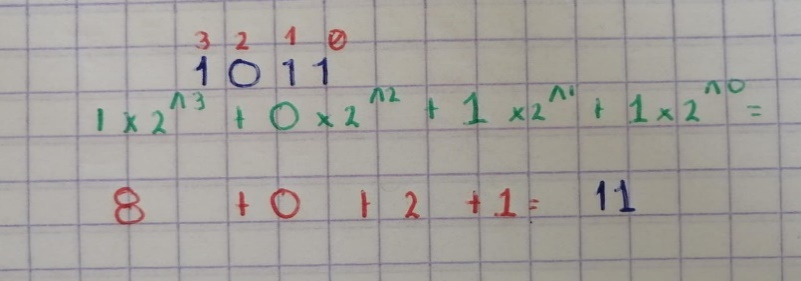 3 2 1 0
1 0 1 1
1 x 2^3 + 0 x 2^2 + 1 x 2^1 + 1 x 2^0 =
8 + 0 + 2 + 1 = 11